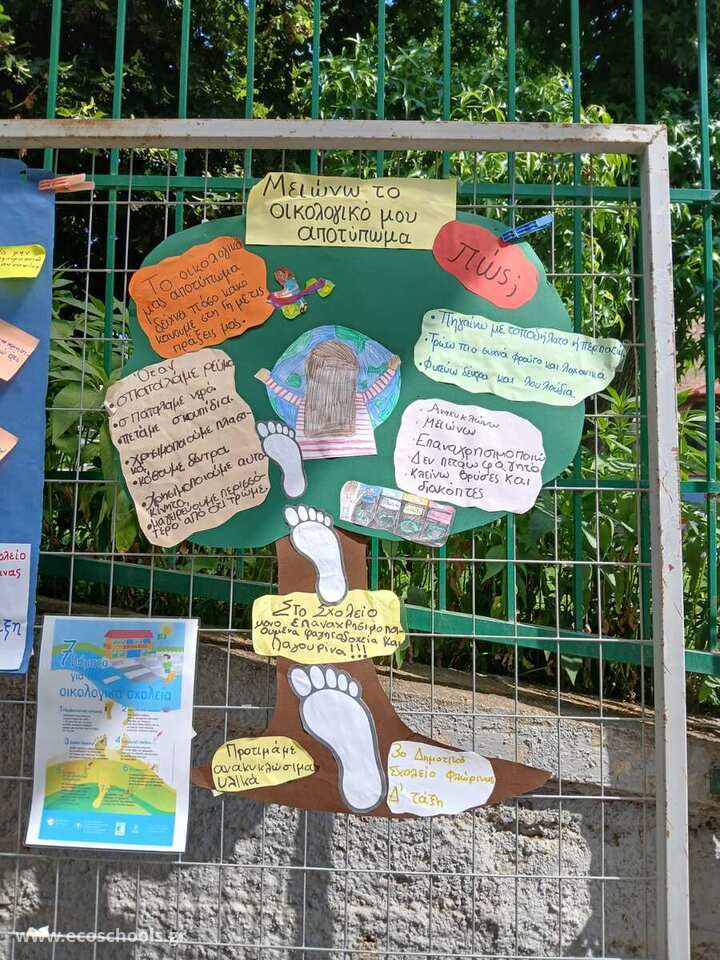 Μειώνω το
οικολογικό μου
αποτύπωμα
Πώς;
Το οικολογικό
μας αποτύπωμα
δείχνει πόσο κακό
κάνουμε στη γη με τις
πράξεις μας.
Όταν
• σπαταλάμε ρεύμα
• σπαταλάμε νερό
• πετάμε σκουπίδια
• χρησιμοποιούμε πλαστι-
κά
• κόβουμε δέντρα
• Χρησιμοποιούμε αυτο-
κίνητο
• μαγειρεύουμε περισσό-
τερο από ότι τρώμε
• Πηγαίνω με το ποδήλατο ή περπατάω
• Τρώω πιο συχνά φρούτα και λαχανικά
• Φυτεύω δέντρα και λουλούδια.
• Ανακυκλώνω
• Μειώνω
• Επαναχρησιμοποιώ
• Δεν πετάω φαγητό
• κλείνω βρύσες και
διακόπτες
Στο Σχολείο
μόνο επαναχρησιμοποι-
ούμενα φαγητοδοχεία και
παγουρίνα!!!
Προτιμάμε
ανακυκλώσιμα
υλικά
3ο Δημοτικό
Σχολείο Φλώρινας
Δ' τάξη
7 βήματα
για
οικολογικά σχολεία
www.ecoschools.gr